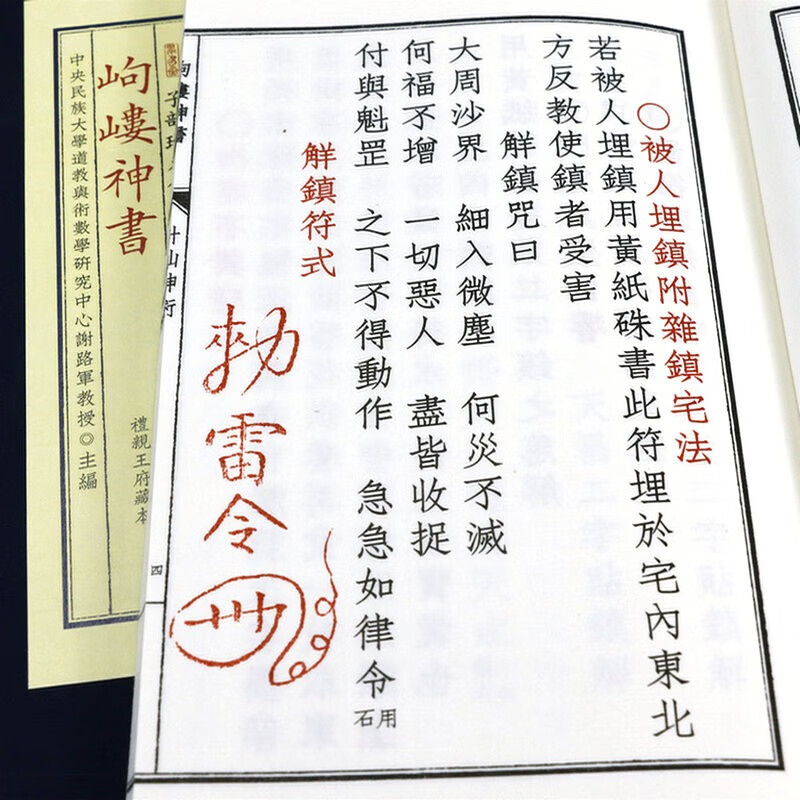 ○被人埋鎮附雜鎮宅法
若被人埋鎮用黃紙硃書此符埋於宅內東北
方反教使鎮者受害
解鎮咒曰
大周沙界 細入微塵 何災不滅
何福不增 一切惡人 盡皆收捉
付與魁罡 之下不得動作 急急如律令 用石
解鎮符式
勅雷令
四
岣嶁神書
子部珍
岣嶁神書
中央民族大學道教與術數學研究中心謝路軍教授◎主編
禮親王府藏本